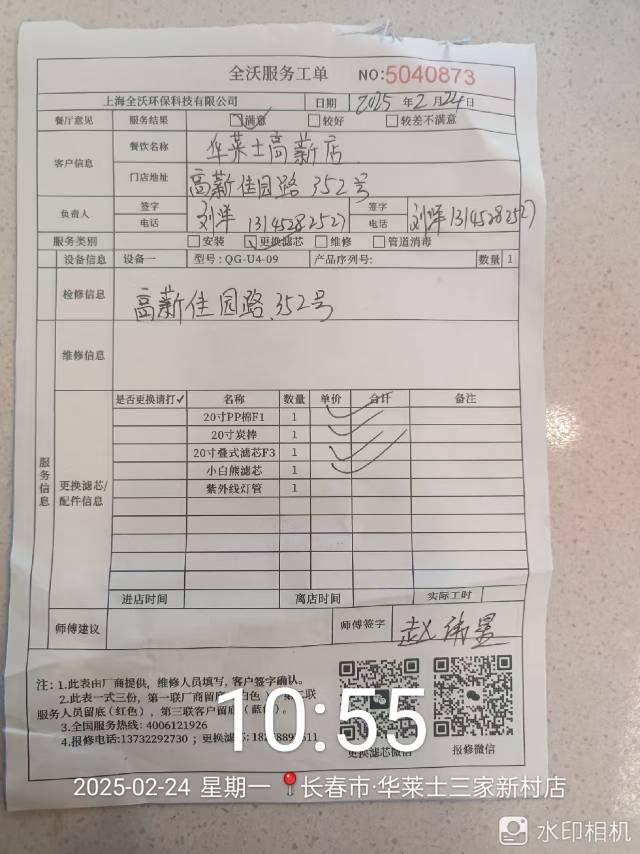 全沃服务工单 NO:5040873
上海全沃环保科技有限公司 日期 2025 年 2 月 24 日
餐厅意见 服务结果 ☑满意 □较好 □较差不满意
客户信息 餐饮名称 华莱士高薪店
门店地址 高薪佳园路 352号
负责人 签字 电话 刘洋 13145282527 签字 电话 刘洋 13145282527
服务类别 □安装 ☑更换滤芯 □维修 □管道消毒
设备信息 设备一 型号: QG-U4-09 产品序列号: 数量 1
检修信息 高薪佳园路、352号
维修信息
服务信息
更换滤芯/配件信息
是否更换请打✓ 名称 数量 单价 合计 备注
20寸PP棉F1 1 ✓
20寸炭棒 1 ✓
20寸叠式滤芯F3 1 ✓
小白熊滤芯 1 ✓
紫外线灯管 1
进店时间 离店时间 实际工时
师傅建议 师傅签字 赵
注: 1.此表由厂商提供, 维修人员填写, 客户签字确认。
2.此表一式三份, 第一联厂商留底(白色) 第二联
服务人员留底(红色), 第三联客户留底(蓝色)。
3.全国服务热线: 4006121926
4.报修电话:13732292730 ; 更换滤芯:
更换滤芯微信 报修微信
10:55
2025-02-24 星期一 长春市·华莱士三家新村店
水印相机